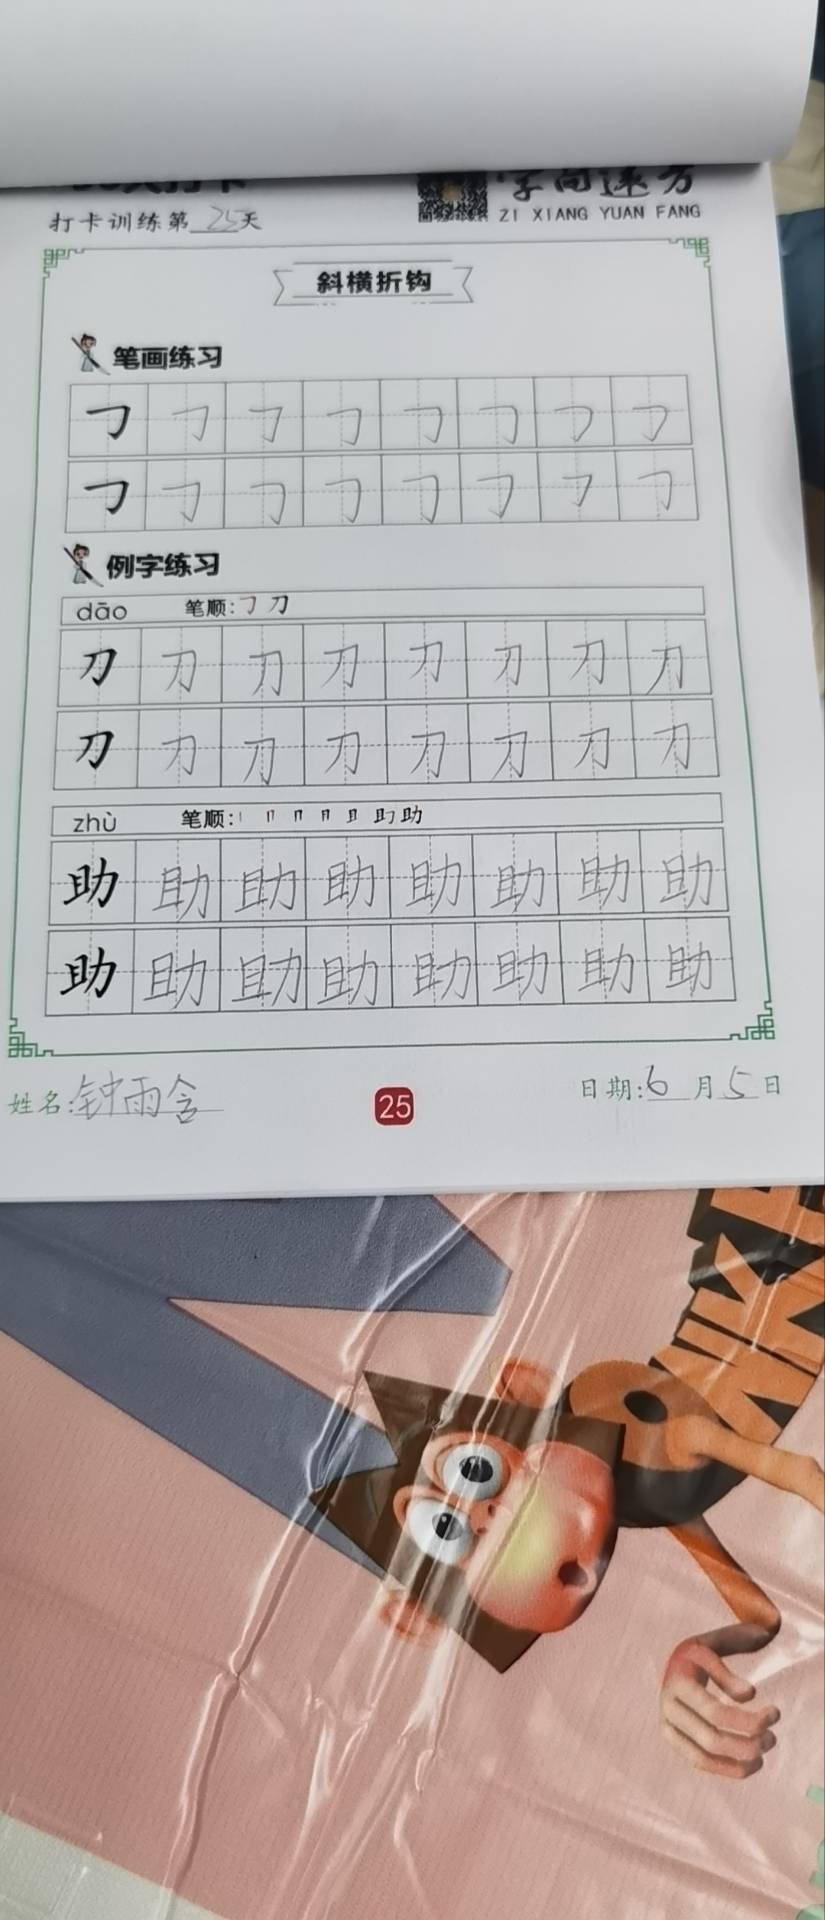 打卡训练第25天
字向远方
ZI XIANG YUAN FANG
斜横折钩
笔画练习
例字练习
dāo 笔顺: 刀
刀 刀 刀 刀 刀 刀 刀 刀
刀 刀 刀 刀 刀 刀 刀 刀
zhù 笔顺: 助
助 助 助 助 助 助 助 助
助 助 助 助 助 助 助 助
姓名:钟雨含
25
日期:6月5日